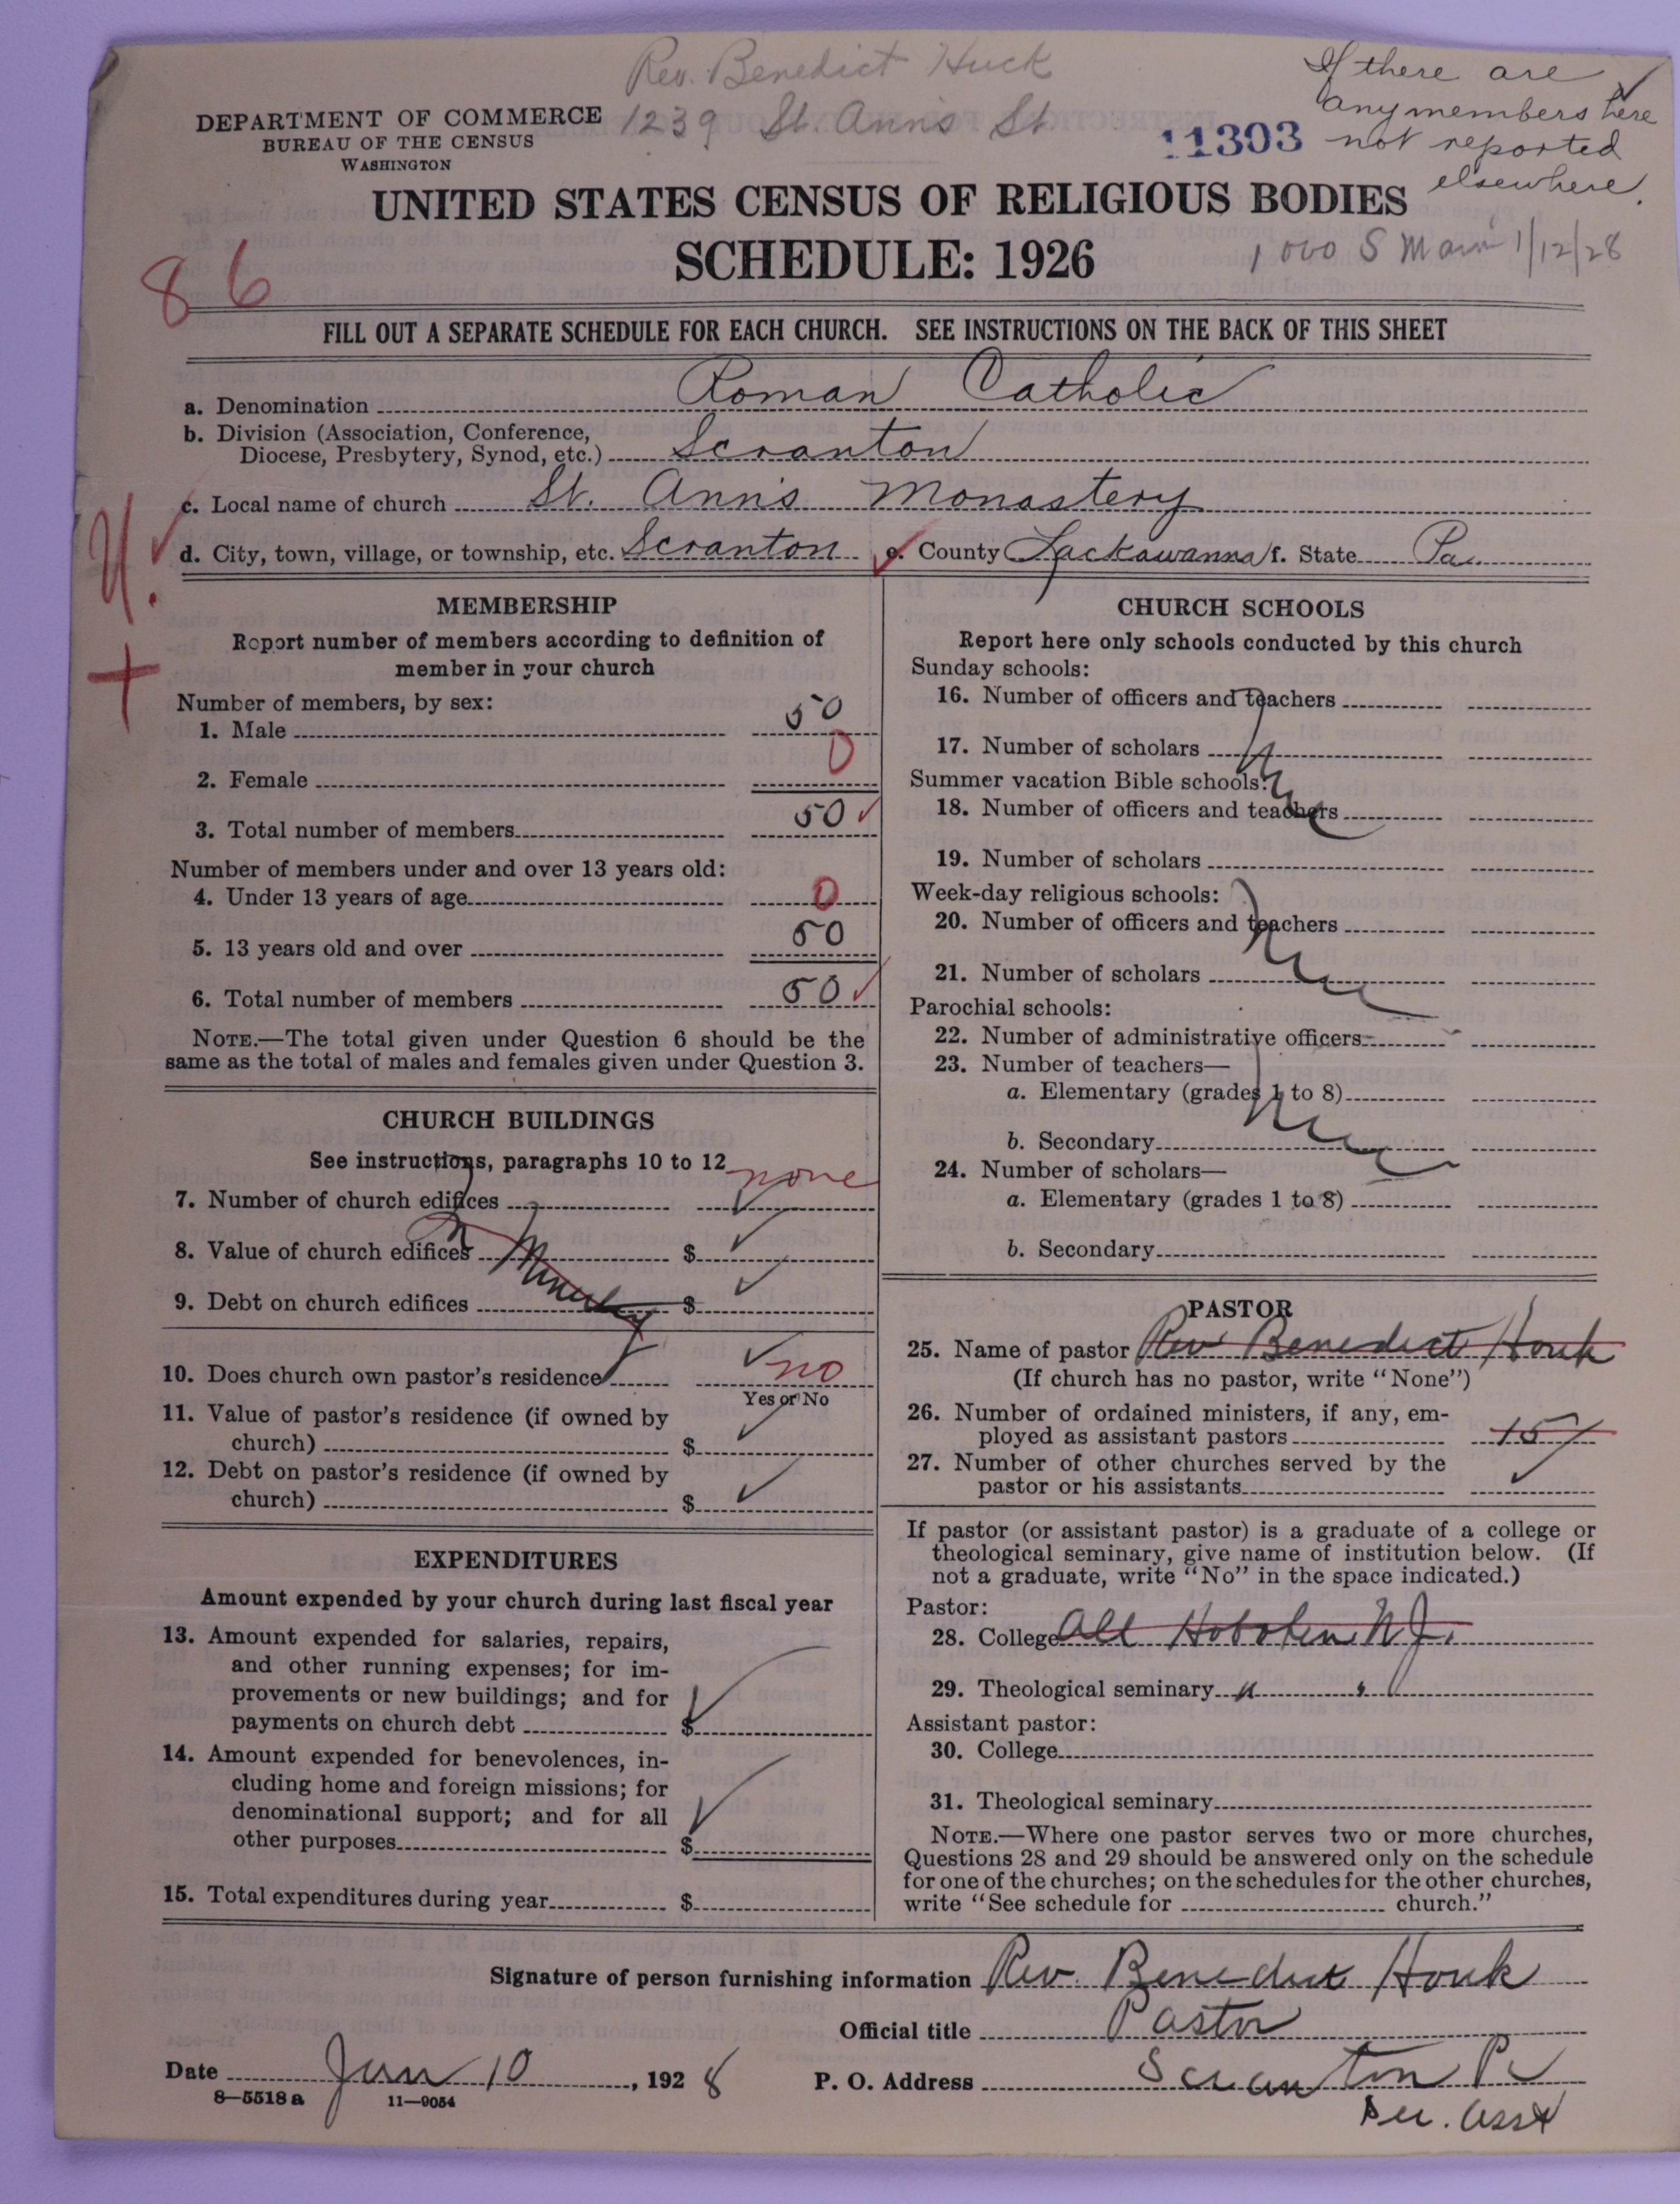 Rev. Benedict Huck
1239 St. Ann's St.
If there are
any members here
not reported
elsewhere.
DEPARTMENT OF COMMERCE
BUREAU OF THE CENSUS
WASHINGTON
11303
UNITED STATES CENSUS OF RELIGIOUS BODIES
SCHEDULE: 1926
1000 S Main 1/12/28
86
FILL OUT A SEPARATE SCHEDULE FOR EACH CHURCH. SEE INSTRUCTIONS ON THE BACK OF THIS SHEET
a. Denomination Roman Catholic
b. Division (Association, Conference,
Diocese, Presbytery, Synod, etc.) Scranton
c. Local name of church St. Ann's Monastery
d. City, town, village, or township, etc. Scranton e. County Lackawanna f. State Pa.
MEMBERSHIP
Report number of members according to definition of
member in your church
Number of members, by sex:
1. Male 50
2. Female 0
3. Total number of members 50 ✓
Number of members under and over 13 years old:
4. Under 13 years of age 0
5. 13 years old and over 50
6. Total number of members 50 ✓
NOTE.—The total given under Question 6 should be the
same as the total of males and females given under Question 3.
CHURCH BUILDINGS
See instructions, paragraphs 10 to 12
7. Number of church edifices none
8. Value of church edifices $ ✓
9. Debt on church edifices $ ✓
10. Does church own pastor's residence ✓ no
Yes or No
11. Value of pastor's residence (if owned by
church) $ ✓
12. Debt on pastor's residence (if owned by
church) $ ✓
EXPENDITURES
Amount expended by your church during last fiscal year
13. Amount expended for salaries, repairs,
and other running expenses; for im-
provements or new buildings; and for
payments on church debt $ ✓
14. Amount expended for benevolences, in-
cluding home and foreign missions; for
denominational support; and for all
other purposes $ ✓
15. Total expenditures during year $
CHURCH SCHOOLS
Report here only schools conducted by this church
Sunday schools:
16. Number of officers and teachers
17. Number of scholars
Summer vacation Bible schools:
18. Number of officers and teachers
19. Number of scholars
Week-day religious schools:
20. Number of officers and teachers
21. Number of scholars
Parochial schools:
22. Number of administrative officers
23. Number of teachers—
a. Elementary (grades 1 to 8)
b. Secondary
24. Number of scholars—
a. Elementary (grades 1 to 8)
b. Secondary
PASTOR
25. Name of pastor Rev Benedict Houk
(If church has no pastor, write "None")
26. Number of ordained ministers, if any, em-
ployed as assistant pastors 15
27. Number of other churches served by the
pastor or his assistants ✓
If pastor (or assistant pastor) is a graduate of a college or
theological seminary, give name of institution below. (If
not a graduate, write "No" in the space indicated.)
Pastor:
28. College All Hoboken N.J.
29. Theological seminary " "
Assistant pastor:
30. College
31. Theological seminary
NOTE.—Where one pastor serves two or more churches,
Questions 28 and 29 should be answered only on the schedule
for one of the churches; on the schedules for the other churches,
write "See schedule for church."
Signature of person furnishing information Rev. Benedict Houk
Official title Pastor
Date Jan 10, 1928 P. O. Address Scranton Pa
8—5518 a 11—9054